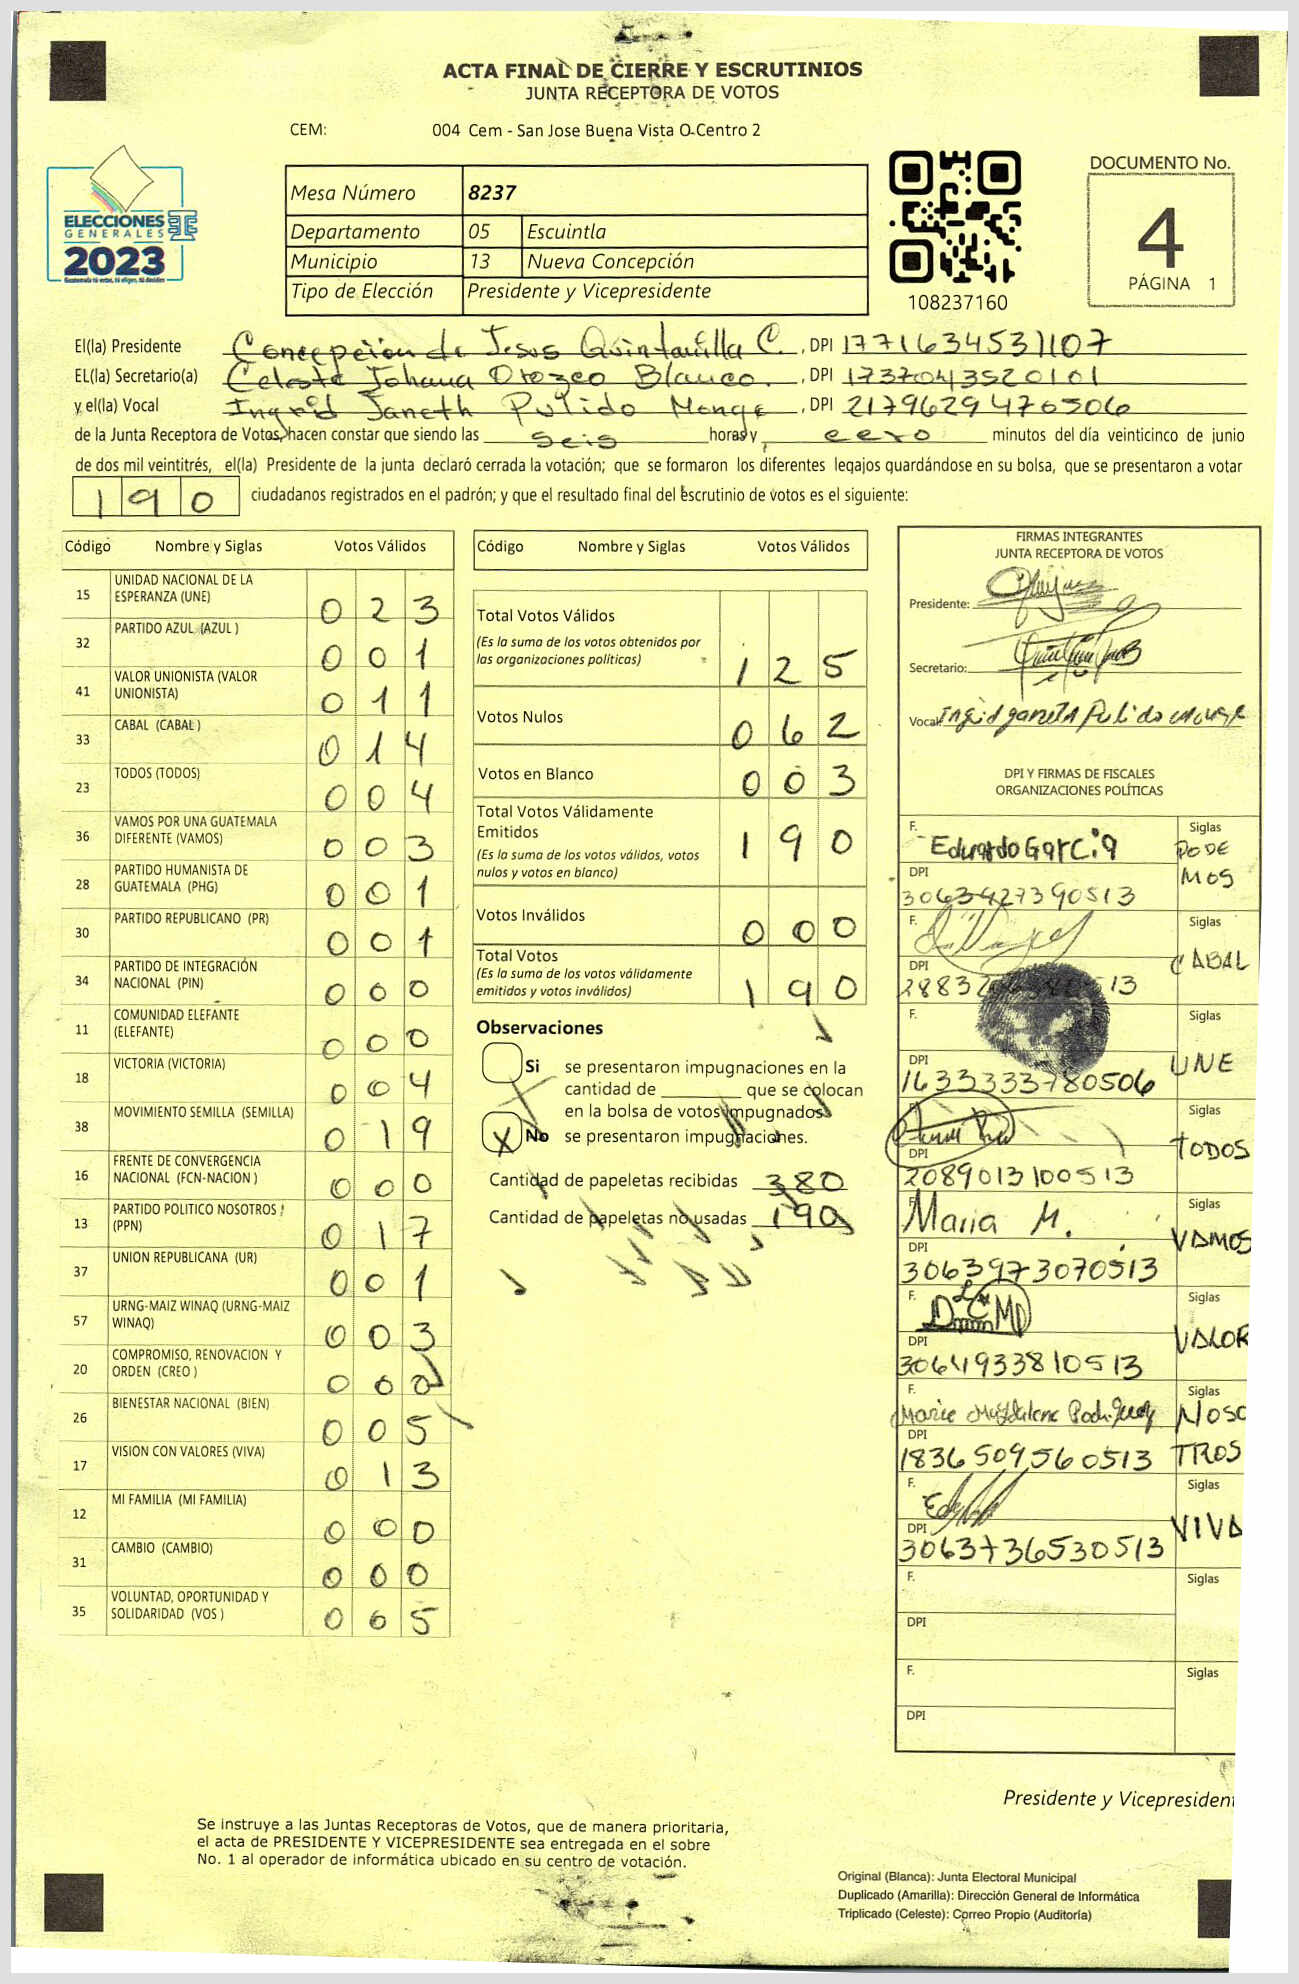 ACTA FINAL DE CIERRE Y ESCRUTINIOS
JUNTA RECEPTORA DE VOTOS
CEM: 004 Cem - San Jose Buena Vista O-Centro 2
ELECCIONES
GENERALES
2023
Guatemala tú votas, tú eliges, tú decides
Mesa Número 8237
Departamento 05 Escuintla
Municipio 13 Nueva Concepción
Tipo de Elección Presidente y Vicepresidente
108237160
DOCUMENTO No.
4
PÁGINA 1
El(la) Presidente Concepción de Jesus Quintanilla C. , DPI 1771634531107
EL(la) Secretario(a) Celeste Johana Orozco Blanco. , DPI 1737043520101
y el(la) Vocal Ingrid Janeth Pulido Monge , DPI 2179629470506
de la Junta Receptora de Votos, hacen constar que siendo las seis horas y cero minutos del día veinticinco de junio
de dos mil veintitrés, el(la) Presidente de la junta declaró cerrada la votación; que se formaron los diferentes legajos guardándose en su bolsa, que se presentaron a votar
190 ciudadanos registrados en el padrón; y que el resultado final del escrutinio de votos es el siguiente:
Código Nombre y Siglas Votos Válidos
15 UNIDAD NACIONAL DE LA ESPERANZA (UNE) 023
32 PARTIDO AZUL (AZUL ) 001
41 VALOR UNIONISTA (VALOR UNIONISTA) 011
33 CABAL (CABAL ) 014
23 TODOS (TODOS) 004
36 VAMOS POR UNA GUATEMALA DIFERENTE (VAMOS) 003
28 PARTIDO HUMANISTA DE GUATEMALA (PHG) 001
30 PARTIDO REPUBLICANO (PR) 001
34 PARTIDO DE INTEGRACIÓN NACIONAL (PIN) 000
11 COMUNIDAD ELEFANTE (ELEFANTE) 000
18 VICTORIA (VICTORIA) 004
38 MOVIMIENTO SEMILLA (SEMILLA) 019
16 FRENTE DE CONVERGENCIA NACIONAL (FCN-NACION ) 000
13 PARTIDO POLITICO NOSOTROS (PPN) 017
37 UNION REPUBLICANA (UR) 001
57 URNG-MAIZ WINAQ (URNG-MAIZ WINAQ) 003
20 COMPROMISO, RENOVACION Y ORDEN (CREO ) 000
26 BIENESTAR NACIONAL (BIEN) 005
17 VISION CON VALORES (VIVA) 013
12 MI FAMILIA (MI FAMILIA) 000
31 CAMBIO (CAMBIO) 000
35 VOLUNTAD, OPORTUNIDAD Y SOLIDARIDAD (VOS ) 005
Código Nombre y Siglas Votos Válidos
Total Votos Válidos
(Es la suma de los votos obtenidos por
las organizaciones políticas) 125
Votos Nulos 062
Votos en Blanco 003
Total Votos Válidamente
Emitidos
(Es la suma de los votos válidos, votos
nulos y votos en blanco) 190
Votos Inválidos 000
Total Votos
(Es la suma de los votos válidamente
emitidos y votos inválidos) 190
Observaciones
Si se presentaron impugnaciones en la
cantidad de ________ que se colocan
en la bolsa de votos impugnados
X No se presentaron impugnaciones.
Cantidad de papeletas recibidas 380
Cantidad de papeletas no usadas 190
FIRMAS INTEGRANTES
JUNTA RECEPTORA DE VOTOS
Presidente:
Secretario:
Vocal: Ingrid Janeth Pulido Monge
DPI Y FIRMAS DE FISCALES
ORGANIZACIONES POLÍTICAS
F. Eduardo Garcia Siglas PODE MOS
DPI 3063427390513
F. Siglas CABAL
DPI
F. Siglas UNE
DPI 1633333780506
F. Siglas TODOS
DPI 2089013100513
F. Maria M. Siglas VAMOS
DPI 3063973070513
F. Siglas VALOR
DPI 3064933810513
F. Marie Magdalena Rodriguez Siglas NOSO TROS
DPI 1836509560513
F. Siglas VIVA
DPI 3063736530513
F. Siglas
DPI
F. Siglas
DPI
Presidente y Vicepresiden
Se instruye a las Juntas Receptoras de Votos, que de manera prioritaria,
el acta de PRESIDENTE Y VICEPRESIDENTE sea entregada en el sobre
No. 1 al operador de informática ubicado en su centro de votación.
Original (Blanca): Junta Electoral Municipal
Duplicado (Amarilla): Dirección General de Informática
Triplicado (Celeste): Correo Propio (Auditoría)